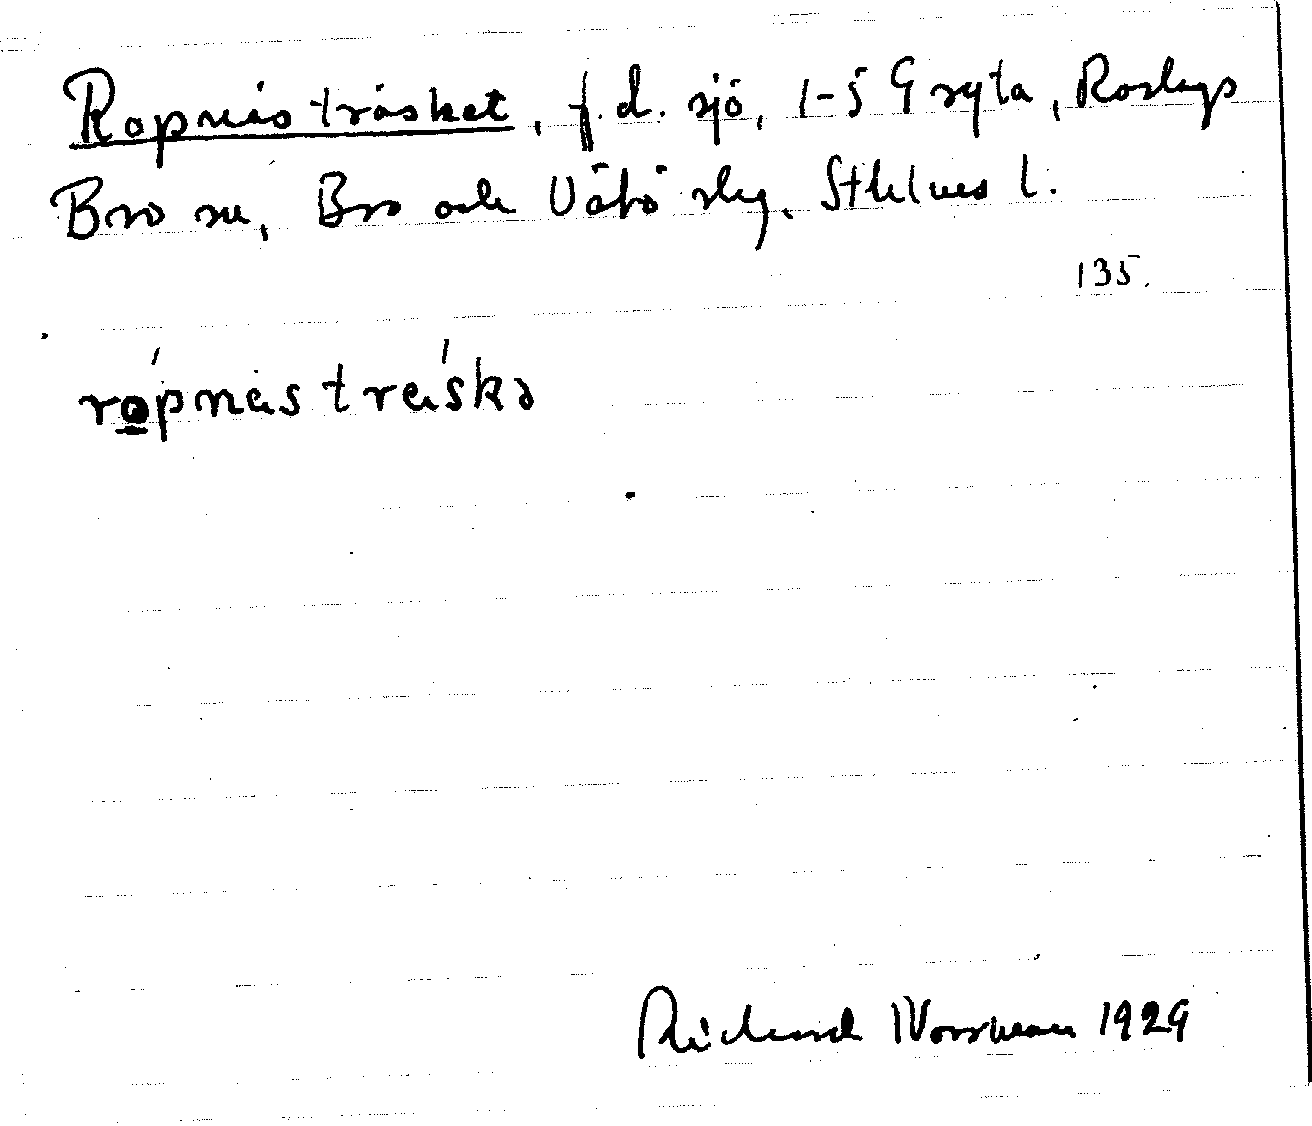 Ropnästräsket, f.d. sjö, 1-5 Gryta, Roslags
Bro sn, Bro och Vätö slg. Sthlms l.
135.
rópnæstræ´skə
Rickard Norrman 1929